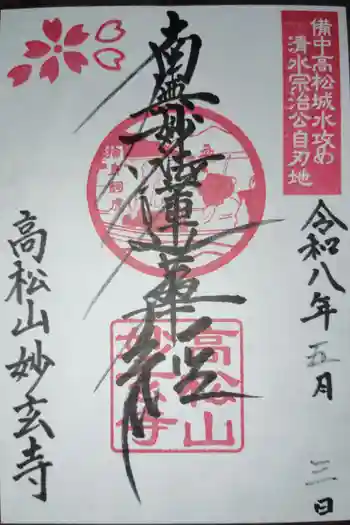 備中高松城水攻め
清水宗治公自刃地
令和八年五月三日
南無妙法蓮華経
高松山
妙玄寺
高松山妙玄寺